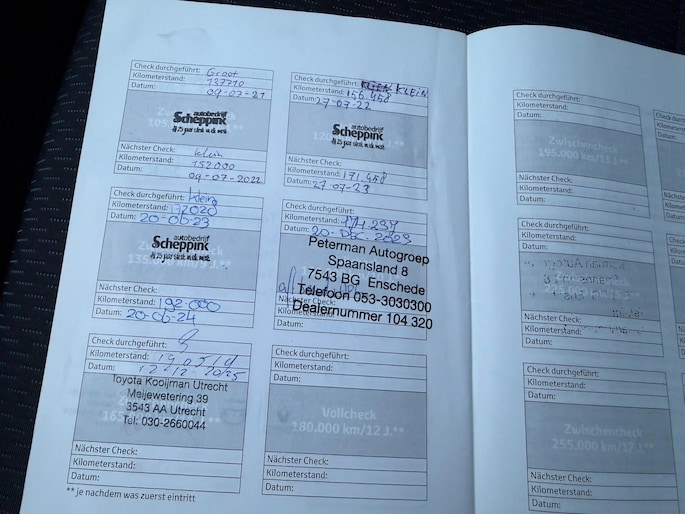 Check durchgeführt: Groot
Kilometerstand: 137710
Datum: 09-07-21
autobedrijf
Scheppink
Nächster Check: Klein
Kilometerstand: 152000
Datum: 09-07-2022
Check durchgeführt: KLEIN
Kilometerstand: 156.458
Datum: 27-07-22
autobedrijf
Scheppink
Nächster Check:
Kilometerstand: 171.458
Datum: 27-07-23
Check durchgeführt: Klein
Kilometerstand: 172020
Datum: 20-06-23
autobedrijf
Scheppink
135.000 km/9 J.**
Nächster Check:
Kilometerstand: 192-000
Datum: 20-06-24
Check durchgeführt:
Kilometerstand: 174.237
Datum: 20-DEC. 2023
Peterman Autogroep
Spaansland 8
7543 BG Enschede
Telefoon 053-3030300
Dealernummer 104 320
Nächster Check:
Kilometerstand:
Datum:
Check durchgeführt:
Kilometerstand:
Datum: 12-12-2025
Toyota Kooijman Utrecht
Meijewetering 39
3543 AA Utrecht
Tel: 030-2660044
Nächster Check:
Kilometerstand:
Datum:
** je nachdem was zuerst eintritt
Check durchgeführt:
Kilometerstand:
Datum:
Vollcheck
180.000 km/12 J.**
Nächster Check:
Kilometerstand:
Datum:
Check durchgeführt:
Kilometerstand:
Datum:
Zwischencheck
195.000 km/13 J.**
Nächster Check:
Kilometerstand:
Datum:
Check durchgeführt:
Kilometerstand:
Datum:
Nächster Check:
Kilometerstand:
Datum:
Check durchgeführt:
Kilometerstand:
Datum:
Zwischencheck
255.000 km/17 J.**
Nächster Check:
Kilometerstand:
Datum: